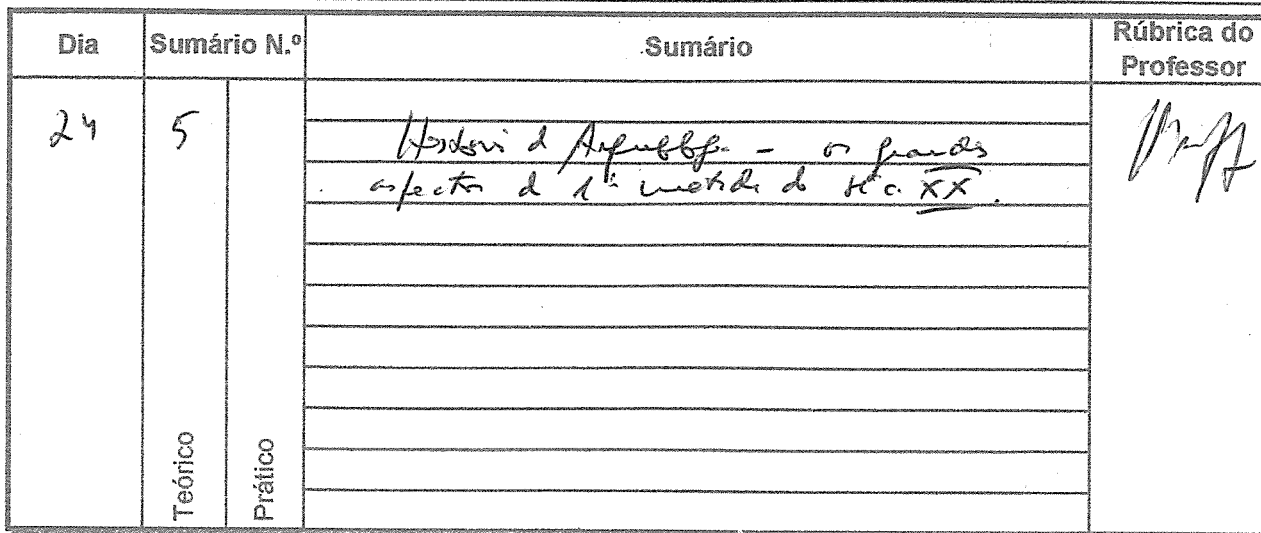 Dia
Sumário N.º
Sumário
Rúbrica do
Professor
24
5
História d - os grandes
aspectos d 1ª metade do séc. XX.
Teórico
Prático